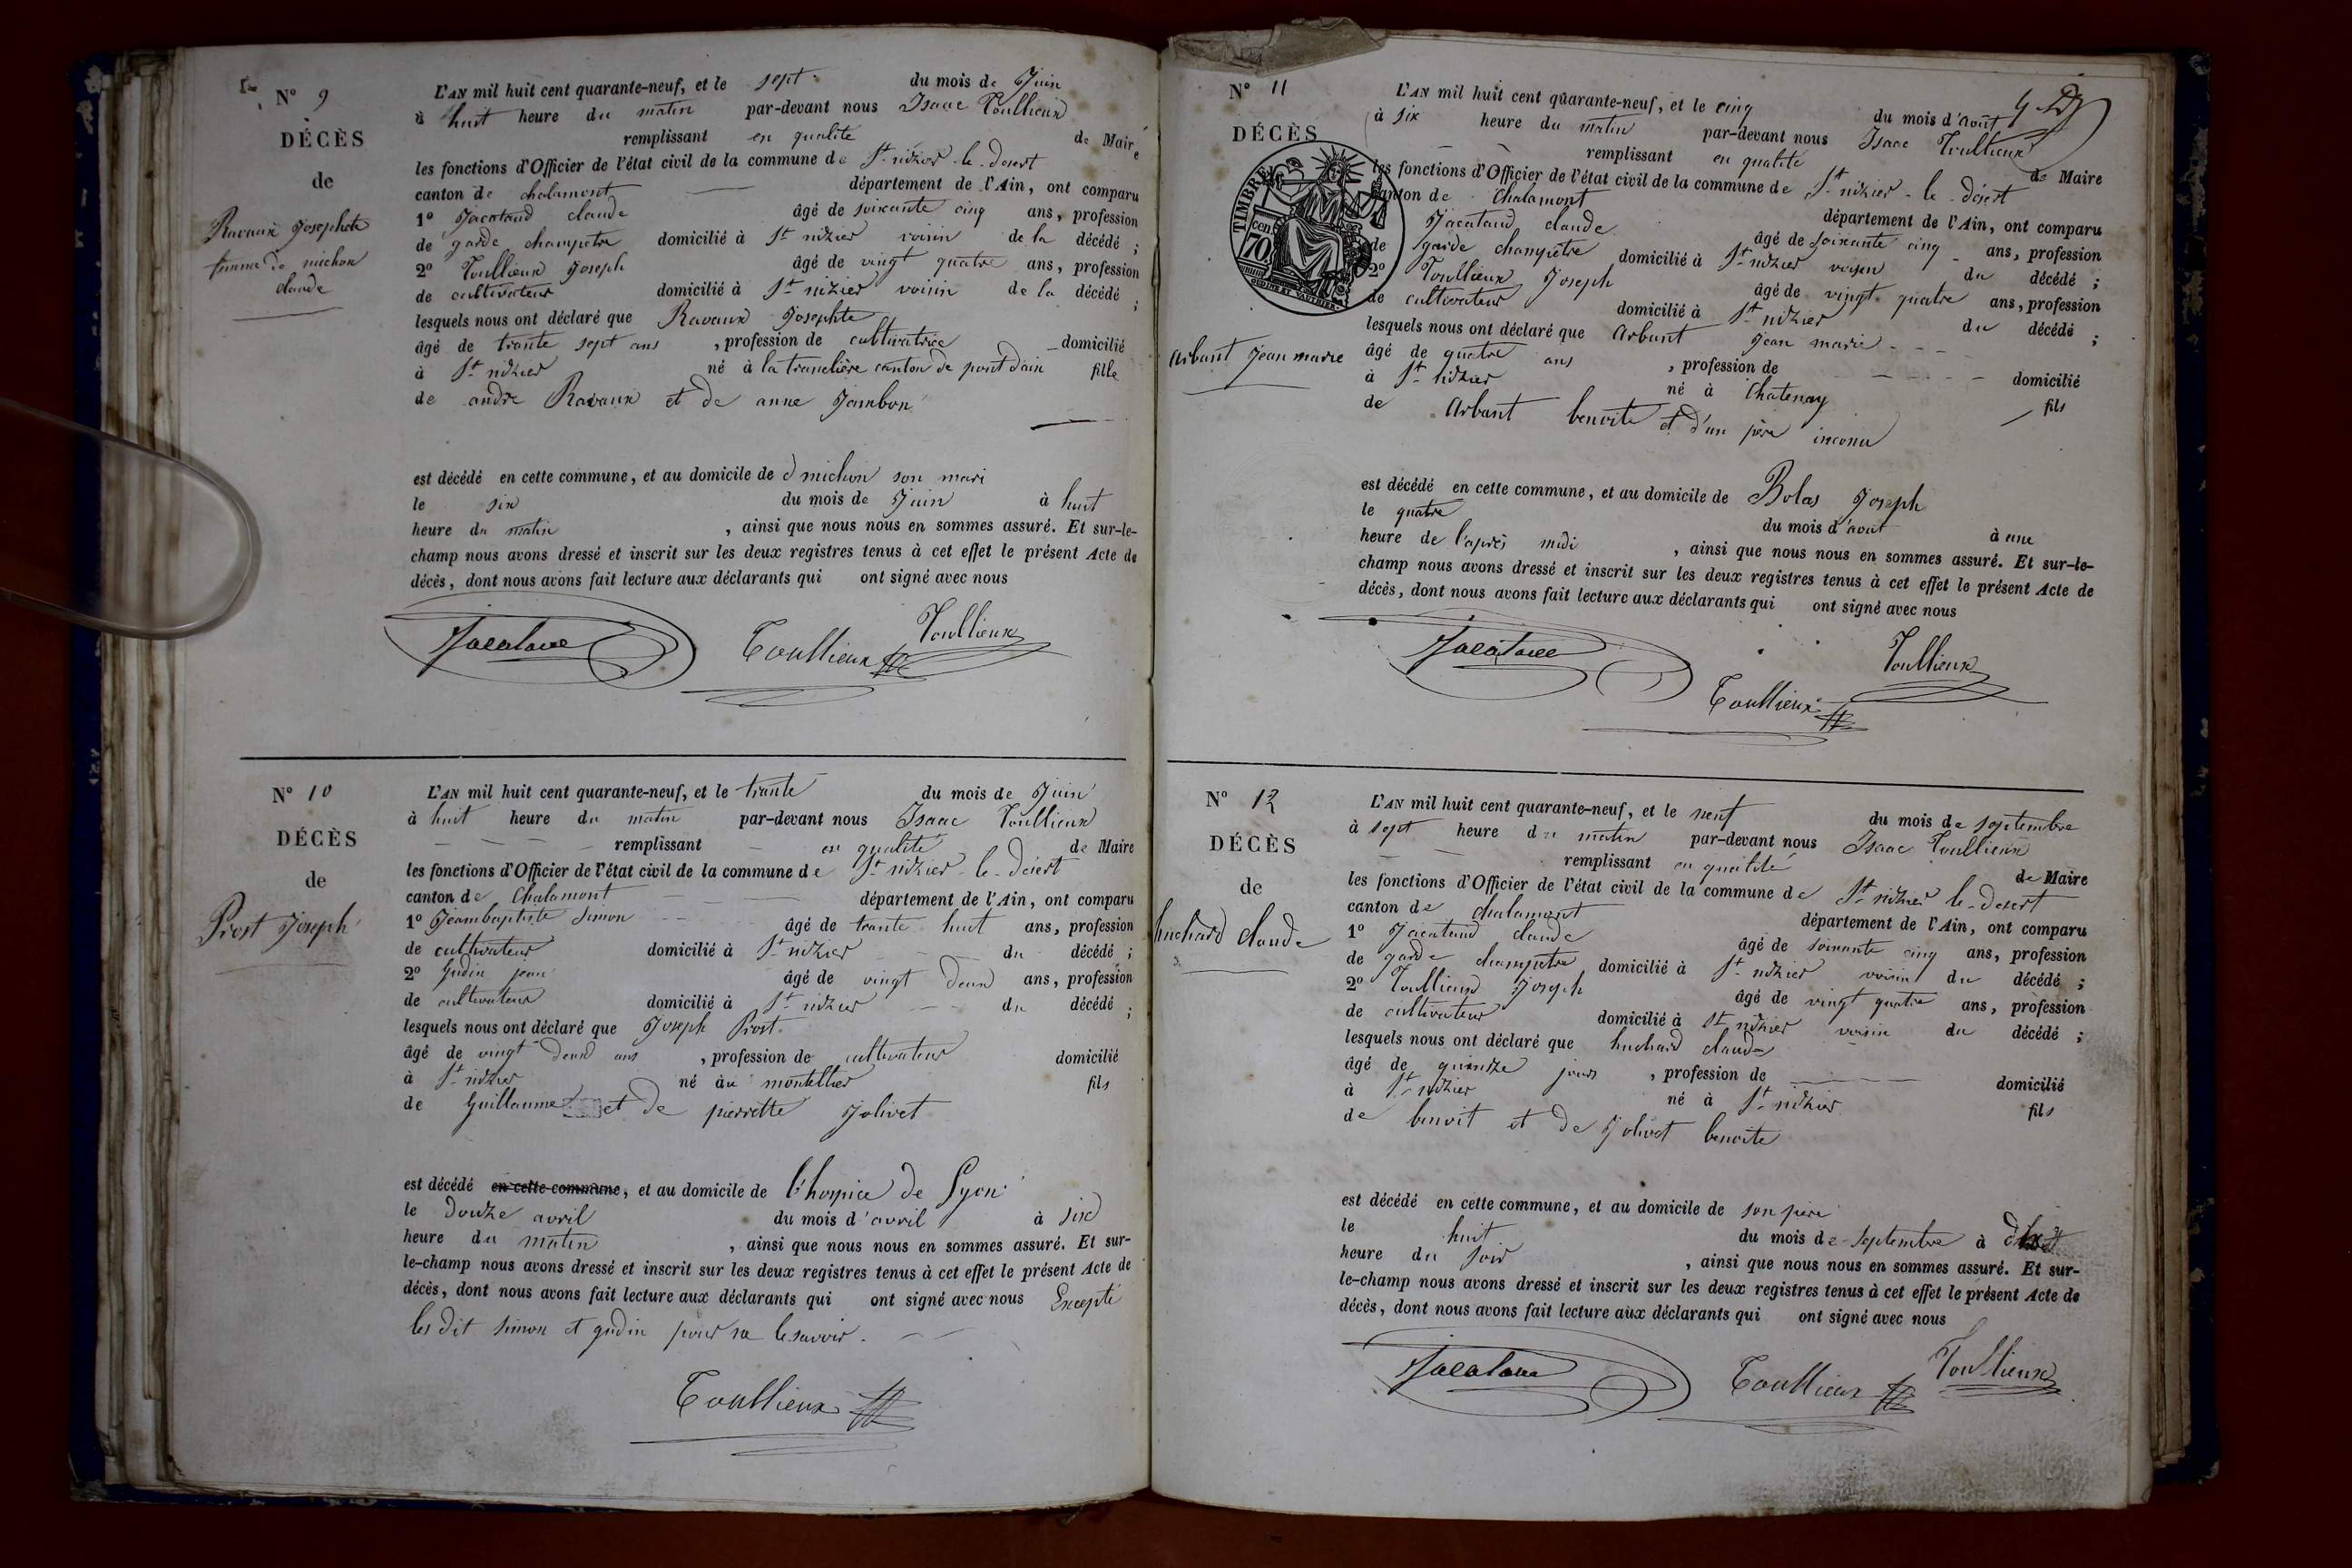 N° 9
DÉCÈS
de
Ravaux Josephte
femme de michon
claude
L'AN mil huit cent quarante-neuf, et le sept du mois de Juin
à huit heure du matin par-devant nous Isaac Toullieux
remplissant en qualité de Maire
les fonctions d'Officier de l'état civil de la commune de St nizier-le-desert
canton de chalamont département de l'Ain, ont comparu
1° Jacataud claude âgé de soixante cinq ans, profession
de garde champetre domicilié à St nizier voisin de la décédé ;
2° Toullieux Joseph âgé de vingt quatre ans, profession
de cultivateur domicilié à St nizier voisin de la décédé ;
lesquels nous ont déclaré que Ravaux Josephte
âgé de trante sept ans , profession de cultivatrice domicilié
à St nizier né à la tranclière canton de pont dain fille
de andré Ravaux et de anne Jambon
est décédé en cette commune, et au domicile de d michon son mari
le six du mois de Juin à huit
heure du matin , ainsi que nous nous en sommes assuré. Et sur-le-
champ nous avons dressé et inscrit sur les deux registres tenus à cet effet le présent Acte de
décès, dont nous avons fait lecture aux déclarants qui ont signé avec nous
Toullieux
Toullieux
N° 10
DÉCÈS
de
Prost Joseph
L'AN mil huit cent quarante-neuf, et le trante du mois de Juin
à huit heure du matin par-devant nous Isaac Toullieux
remplissant en qualité de Maire
les fonctions d'Officier de l'état civil de la commune de St nizier-le-désert
canton de Chalamont département de l'Ain, ont comparu
1° Jeambaptiste simon âgé de trante huit ans, profession
de cultivateur domicilié à St nizier du décédé ;
2° Gudin jean âgé de vingt deux ans, profession
de cultivateur domicilié à St nizier du décédé ;
lesquels nous ont déclaré que Joseph Prost
âgé de vingt deux ans , profession de cultivateur domicilié
à St nizier né au montellier fils
de Guillaume et de pierrette Jolivet
est décédé en cette commune, et au domicile de l'hospice de Lyon
le douze avril du mois d'avril à six
heure du matin , ainsi que nous nous en sommes assuré. Et sur-
le-champ nous avons dressé et inscrit sur les deux registres tenus à cet effet le présent Acte de
décès, dont nous avons fait lecture aux déclarants qui ont signé avec nous Excepté
les dit simon et gudin pour ne le savoir.
Toullieux
N° 11
DÉCÈS
TIMBRE
70 cen
Arbant Jean marie
L'AN mil huit cent quarante-neuf, et le cinq du mois d'août
à six heure du matin par-devant nous Isaac Toullieux
remplissant en qualité de Maire
les fonctions d'Officier de l'état civil de la commune de St nizier-le-désert
canton de Chalamont département de l'Ain, ont comparu
Jacataud claude âgé de soixante cinq ans, profession
de garde champêtre domicilié à St nizier voisin du décédé ;
2° Toullieux Joseph âgé de vingt quatre ans, profession
de cultivateur domicilié à St nizier du décédé ;
lesquels nous ont déclaré que Arbant Jean marie
âgé de quatre ans , profession de domicilié
à St nizier né à Chatenay fils
de Arbant benoite et d'un père inconu
est décédé en cette commune, et au domicile de Bolas Joseph
le quatre du mois d'août à une
heure de l'après midi , ainsi que nous nous en sommes assuré. Et sur-le-
champ nous avons dressé et inscrit sur les deux registres tenus à cet effet le présent Acte de
décès, dont nous avons fait lecture aux déclarants qui ont signé avec nous
Toullieux
Toullieux
N° 12
DÉCÈS
de
huchard claude
L'AN mil huit cent quarante-neuf, et le neuf du mois de septembre
à sept heure du matin par-devant nous Isaac Toullieux
remplissant en qualité de Maire
les fonctions d'Officier de l'état civil de la commune de St nizier le-desert
canton de chalamont département de l'Ain, ont comparu
1° Jacataud claude âgé de soixante cinq ans, profession
de garde champetre domicilié à St nizier voisin du décédé ;
2° Toullieux Joseph âgé de vingt quatre ans, profession
de cultivateur domicilié à St nizier voisin du décédé ;
lesquels nous ont déclaré que huchard claude
âgé de quinze jours , profession de domicilié
à St nizier né à St nizier fils
de benoit et de Jolivet benoite
est décédé en cette commune, et au domicile de son père
le huit du mois de septembre à
heure du soir , ainsi que nous nous en sommes assuré. Et sur-
le-champ nous avons dressé et inscrit sur les deux registres tenus à cet effet le présent Acte de
décès, dont nous avons fait lecture aux déclarants qui ont signé avec nous
Toullieux
Toullieux